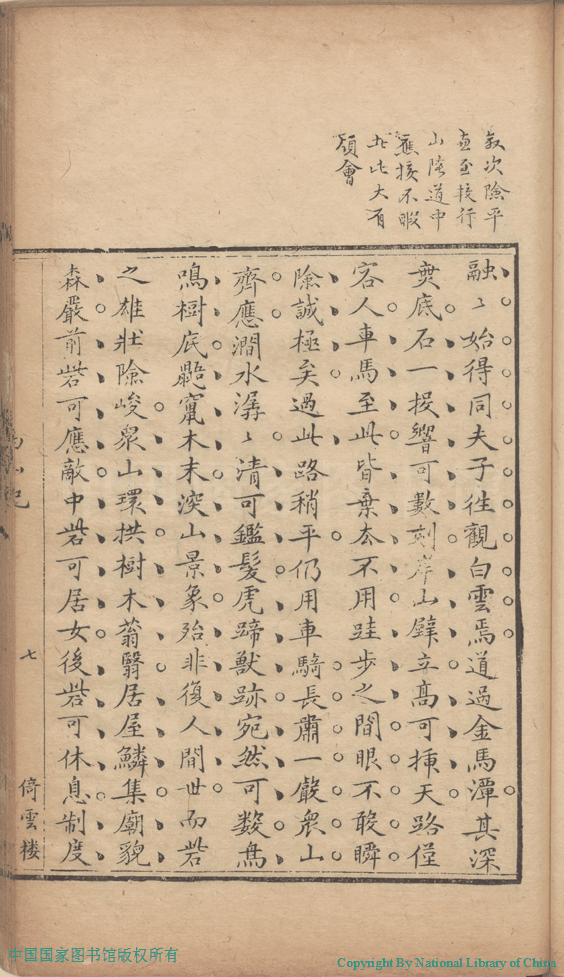 叙次險平
行
山陰道中
應接不暇
此大有
領會
融〻始得同夫子徃觀白雲焉道過金馬潭其深
底石一投響可數刻岸山壁立高可揷天路僅
客人車馬至此皆棄去不用跬步之間眼不敢瞬
險誠極矣過此路稍平仍用車騎長肅一聲衆山
齊應澗水潺〻清可鑑髮虎蹄獸跡宛然可数鳥
鳴樹底鼯竄木末深山景象殆非復人間世而砦
之雄壯險峻衆山環拱樹木蓊翳居屋鱗集廟貌
森嚴前砦可應敵中砦可居女後砦可休息制度
七
倚雲楼
中国国家图书馆版权所有
Copyright By National Library of China